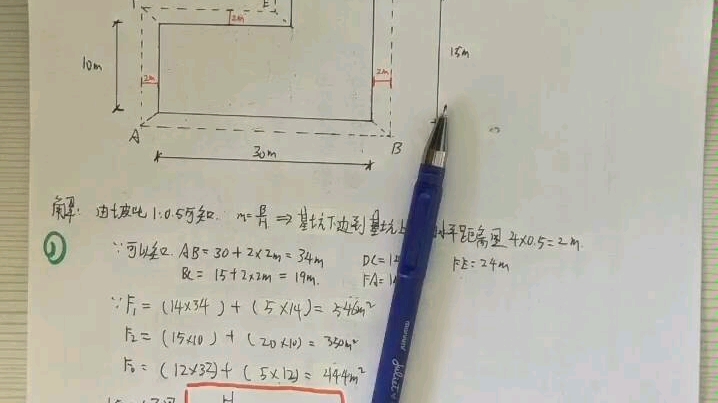 F E
2m
10m
2m
2m
15m
A
B
30m
解: 由坡比1:0.5可知. m=B/H ⇒ 基坑下边到基坑上 水平距离是4×0.5=2m.
①
∵可以知 AB=30+2×2m=34m DC=1 FE=24m
BC=15+2×2m=19m. FA=1
∵F₁=(14×34)+(5×14)=546m²
F₂=(15×10)+(20×10)=350m²
F₀=(12×32)+(5×12)=444m²
H